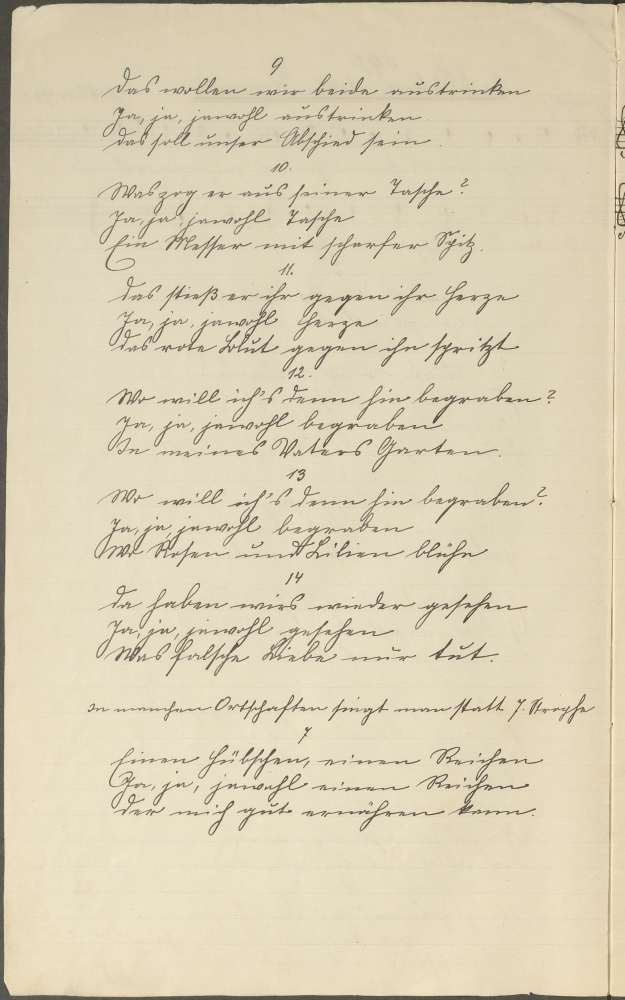 9
Das wollen wir beide austrinken
Ja, ja, jawohl austrinken
Das soll unser Abschied sein.
10.
Was zog er aus seiner Tasche?
Ja, ja, jawohl Tasche
Ein Messer mit scharfer Spitz.
11.
Das stieß er ihr gegen ihr Herze
Ja, ja, jawohl Herze
Das rote Blut gegen ihn spritzt
12.
Wo will ich's denn hin begraben?
Ja, ja, jawohl begraben
In meines Vaters Garten.
13
Wo will ich's denn hin begraben?
Ja, ja, jawohl begraben
Wo Rosen und Lilien blühn
14
Da haben wirs wieder gesehen
Ja, ja, jawohl gesehen
Was falsche Liebe nur tut.
In manchen Ortschaften singt man statt 7. Strophe
7
Einen Hübschen, einen Reichen
Ja, ja, jawohl einen Reichen
Der mich gut ernähren kann.